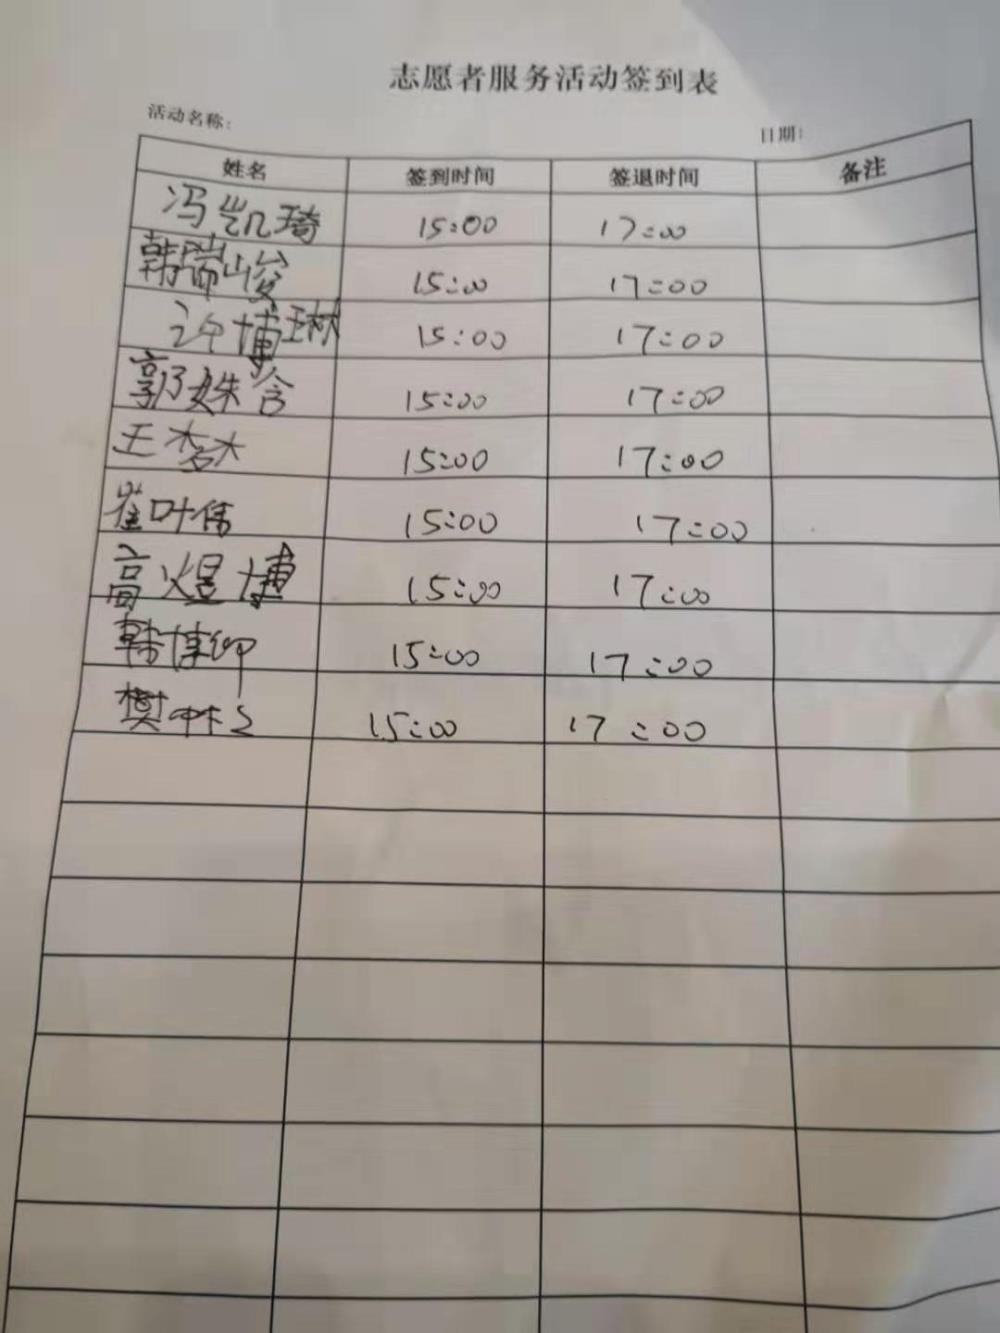 志愿者服务活动签到表
活动名称: 日期:
姓名 签到时间 签退时间 备注
冯凯琦 15:00 17:00
韩瑞峻 15:00 17:00
许博琳 15:00 17:00
郭姝含 15:00 17:00
王梦杰 15:00 17:00
崔叶伟 15:00 17:00
高煜博 15:00 17:00
韩博 15:00 17:00
樊 15:00 17:00